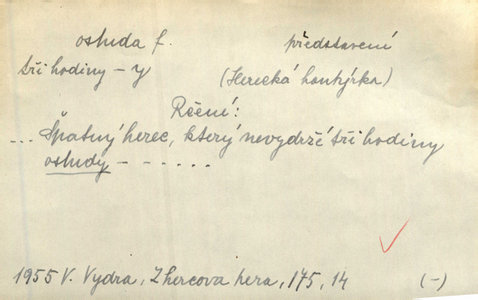 ostuda f. představení
tři hodiny – y (Herecká hantýrka)
Rčení:
... Špatný herec, který nevydrží tři hodiny
ostudy – – . . . .
1955 V. Vydra, Z hercova pera, 175, 14 (–)